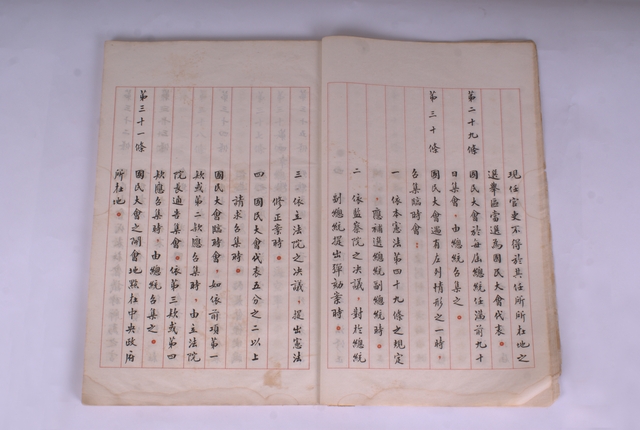 現任官吏不得於其任所所在地之
選舉區當選為國民大會代表。
第二十九條　國民大會於每屆總統任滿前九十
日集會，由總統召集之。
第三十條　國民大會遇有左列情形之一時，
召集臨時會：
一　依本憲法第四十九條之規定
，應補選總統副總統時。
二　依監察院之決議，對於總統
副總統提出彈劾案時。
三　依立法院之決議，提出憲法
修正案時。
四　國民大會代表五分之二以上
請求召集時。
國民大會臨時會，如依前項第一
款或第二款應召集時，由立法院
院長通告集會。依第三款或第四
款應召集時，由總統召集之。
第三十一條　國民大會之開會地點在中央政府
所在地。